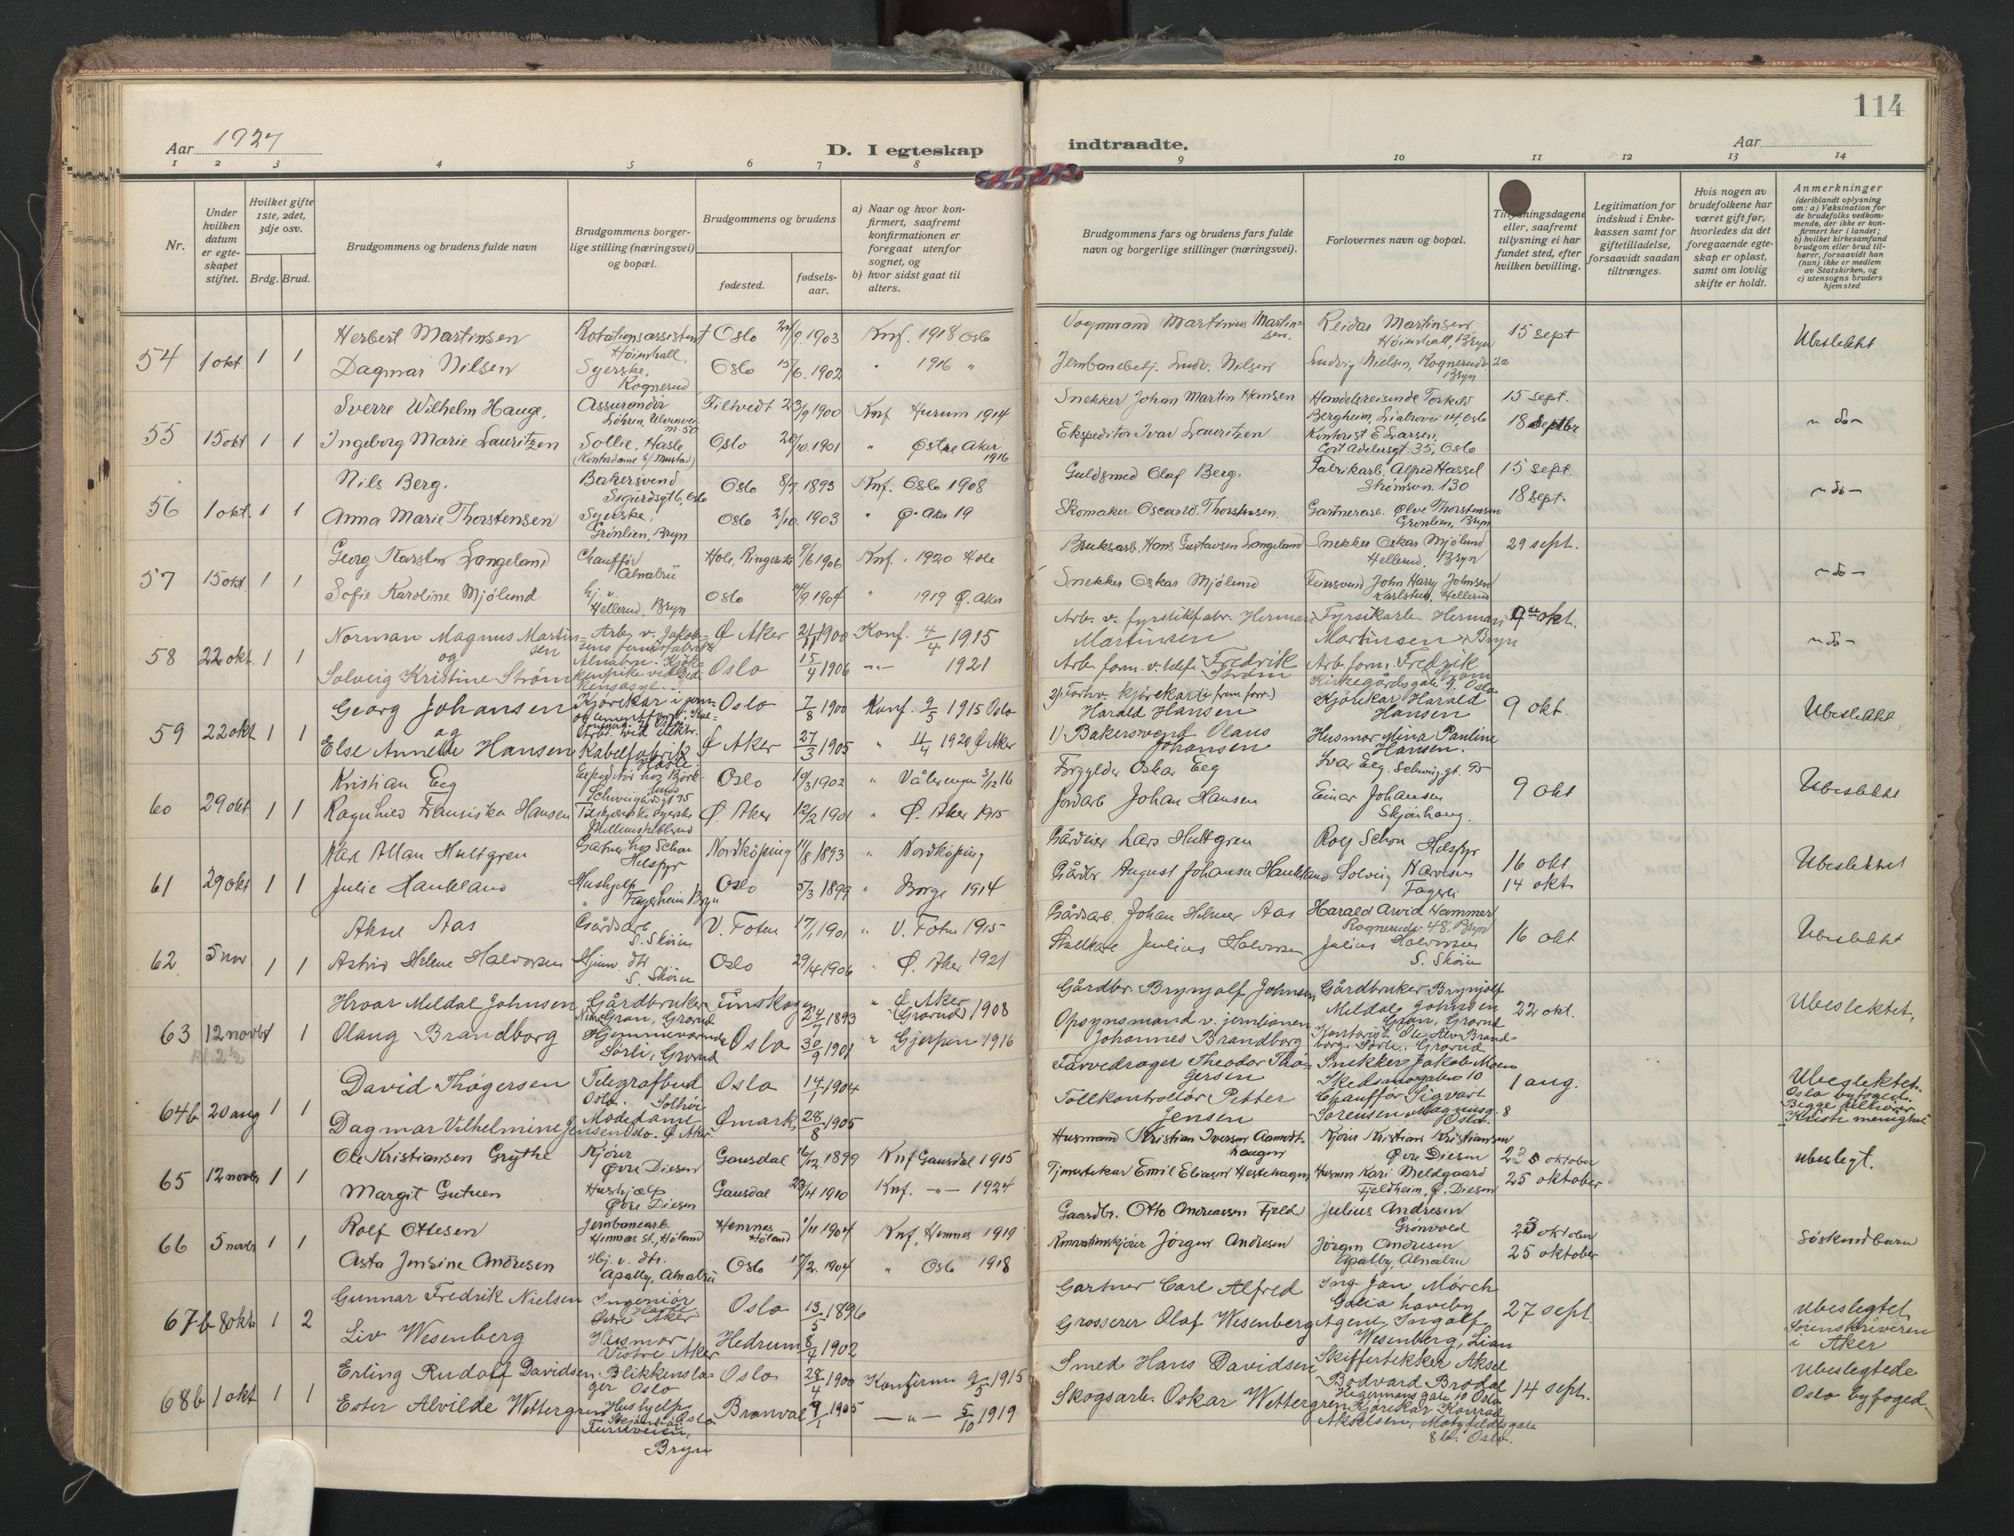 114
Aar 1927
D. I egteskap indtraadte.
Aar
1 2 3 4 5 6 7 8 9 10 11 12 13 14
Nr.
Under hvilken datum er egteskapet stiftet.
Hvilket gifte 1ste, 2det, 3dje osv.
Brdg. Brud.
Brudgommens og brudens fulde navn
Brudgommens borgerlige stilling (næringsvei) og bopæl.
Brudgommens og brudens
fødested.
fødselsaar.
a) Naar og hvor konfirmert, saafremt konfirmationen er foregaat utenfor sognet, og
b) hvor sidst gaat til alters.
Brudgommens fars og brudens fars fulde navn og borgerlige stillinger (næringsvei).
Forlovernes navn og bopæl.
Tillysningsdagene eller, saafremt tillysning ei har fundet sted, efter hvilken bevilling.
Legitimation for indskud i Enkekassen samt for giftetilladelse, forsaavidt saadan tiltrænges.
Hvis nogen av brudefolkene har været gift før, hvorledes da det foregaaende egteskap er opløst, samt om lovlig skifte er holdt.
Anmerkninger (deriblandt oplysning om: a) Vaksination for de brudefolks vedkommende, der ikke er konfirmert her i landet; b) hvilket kirkesamfund brudgom eller brud tilhører, forsaavidt han (hun) ikke er medlem av Statskirken, og c) utensogns bruders hjemsted
54 1 okt 1 1 Herbert Martinsen Rotationsassistent Høienhall, Oslo 22/9 1903 Knf. 1918 Oslo Vognmand Martinius Martinsen. Reidar Martinsen Høienhall, Bryn 15 sept Ubeslektet
Dagmar Nilsen Syerske, Rognerud Oslo 15/6 1902 " 1916 " Jernbanebetj. Ludv. Nilsen Ludvig Nielsen, Rognerud 2a Bryn
55 15 okt 1 1 Sverre Wilhelm Hauge, Assurandør Filtvedt 23/9 1900 Knf Hurum 1914 Snekker Johan Martin Hansen Handelsreisende Torkild Bergheim, Liabrovei 14, Oslo 15 sept. – do –
Ingeborg Marie Lauritzen Sollie, Hasle (Kontordame b/ Mustad) Oslo 20/10 1901 " Østre Aker 1916 Ekspeditør Ivar Lauritzen Kontorist E Larsen, Cort Adelersgt. 35, Oslo 18 septbr
56 1 okt. 1 1 Nils Berg. Bakersvend Sigurdsgt 6, Oslo Oslo 8/7 1893 Knf. Oslo 1908 Guldsmed Olaf Berg. Fabrikarb. Alfred Hassel Strømsvn. 130 15 sept. – do –
Anna Marie Thorstensen Syerske, Grønlien, Bryn Oslo 2/10 1903 " Ø. Aker 19 Skomaker Oscar Thorstensen. Gartnerarb. Ølve Thorstensen Grønlien, Bryn 18 sept.
57 15 okt 1 1 Georg Karsten Langeland Chauffør Alnabru Hole, Ringerike 9/6 1906 Knf. 1920 Hole Bruksarb. Hans Gustavsen Langeland Snekker Oskar Mjølund Hellerud, Bryn 29 sept. – do –
Sofie Karoline Mjølund hj. v. Hellerud, Bryn Oslo /9 1904 " 1919 Ø. Aker Snekker Oskar Mjølund Feiersvend John Harry Johnsen Karlstua, Hellerud
58 22 okt. 1 1 Norman Magnus Martinsen Arb. v. Jakobsens farveri Ø Aker 21/11 1900 Konf. 4/4 1915 Arb. v. fyrstikfabr. Herman Martinsen Fyrstikarb. Herman Martinsen, Bryn 9de okt. – do –
og
Solveig Kristine Strøm Oslo 15/4 1906 –"– 1921 Arb. form. v. telef. Fredrik Strøm Arb. form. Fredrik Strøm Kirkegårdsgate 9, Oslo
59 22 okt 1 1 Georg Johansen Kjørekar i jern og cementforr. Oslo 7/8 1900 Konf. 9/5 1915 Oslo 2). Forhv. kjørekar (i frem forr.) Harald Hansen Kjørekar Harald Hansen 9 okt. Ubeslektet
og
Else Annette Hansen Arb. ved elektr. Kabelfabrik Hasle Ø Aker 27/3 1905 " 11/4 1920 Ø Aker 1). Bakersvend Olaus Johansen Husmor Mina Pauline Hansen.
60 29 okt 1 1 Kristian Eeg Expeditør hos Bjørk Schweigårdsgt 95 Oslo 10/3 1902 " Vålerengen 3/12 16 Forgylder Oskar Eeg Ivar Eeg. Schweig. gt. 95 9 okt Ubeslektet
Ragnhild Fransiska Hansen Ø. Aker 12/2 1901 " Ø. Aker 1915 Jordarb Johan Hansen Einar Johansen Skjønhaug.
61 29 okt 1 1 Karl Allan Hultgren Gartner hos Schou Helsfyr Nordköping 11/8 1893 " Nordköping Gårdeier Lars Hultgren Rolf Schou Helsfyr 16 okt Ubeslektet
Julie Haukland Hushjelp Fagerheim Bryn Oslo 5/3 1899 " Borge 1914 Gårdbr August Johansen Haukland Solveig Harviken Fagerli 14 okt
62 5 nov 1 1 Aksel Aas Gårdsarb. S. Skøien V. Toten 17/1 1901 " V. Toten 1915 Gårdsarb. Johan Helmer Aas Harald Arvid Hammer Rognerudv. 48. Bryn 16 okt Ubeslektet
Astrid Helene Halvorsen Hjem. dtr S. Skøien Oslo 29/4 1906 " Ø. Aker 1921 Stallkar Julius Halvorsen Julius Halvorsen S. Skøien
63 12 novbr 1 1 Hroar Meldal Johnsen Gårdbruker Nedre Gran, Grorud Tinskogen 24/7 1893 " Ø Aker (Grorud) 1908 Gårdbr. Brynjolf Johnsen Gårdbruker Brynjolf Meldal Johnsen Gran, Grorud 22 okt. Ubeslektet,
Kl. 2 ½ Olaug Brandborg Hjemmeværende Sørli, Grorud Oslo 30/9 1901 " Gjerpen 1916 Opsynsmand v. jernbanen Johannes Brandborg Kontorist Ole Alv Brandborg. Sørli, Grorud
64b 20 aug 1 1 David Thøgersen Telegrafbud Oslo. Oslo 14/1 1904 Farvedrager Theodor Thøgersen Snekker Jakob Moen Skedsmogaten 10 1 aug. Ubeslektet. Oslo byfoged. Begge tilhører Kristi menighet
Dagmar Vilhelmine Jensen Modedame Ømark, 28/8 1905 Tollkontrollør Petter Jensen Chauffør Sigvart Sørensen, Magnusg. 8 Oslo.
65 12 novbr 1 1 Ole Kristiansen Grythe Kjører Øvre Diesen Gausdal 16/12 1899 Knf Gausdal 1915 Husmand Kristian Iversen Aamodthaugen Kjører Kristian Kristiansen Øvre Diesen 23 oktober ubeslegt.
Margit Gutuen Hushjælp Øvre Diesen Gausdal 23/4 1910 Knf. –"– 1924 Tjenestekar Emil Eliasen Hestehagen Husmor Kari Meldgaard Fjeldheim, Ø. Diesen 25 oktober
66 5 novbr 1 1 Rolf Ottesen Jernbanearb. Hemnes st., Høland Hemnes Høland 1/11 1904 Knf. Hemnes 1919 Gaardbr. Otto Andreassen Fjeld Julius Andresen Grønvold 23 oktober Søskendbarn
Asta Jensine Andresen Hj. v. dtr. Apalby, Alnabru Oslo 17/2 1904 " Oslo 1918 Renovationskjører Jørgen Andresen Jörgen Andresen Apalby, Alnabru 25 oktober
67b 8 okt 1 2 Gunnar Fredrik Nielsen Ingeniør Østre Aker Oslo 13/5 1896 Gartner Carl Alfred Ing. Jan Mörch 27 sept. ubeslegtet Sorenskriveren i Aker
Liv Wesenberg Husmor Vestre Aker Hedrum 8/7 1902 Grosserer Olaf Wesenberg Agent Ingolf Wesenberg, Lian
68b 1 okt 1 1 Erling Rudolf Davidsen Blikkenslager Oslo Oslo 28/4 1900 Konfirm 9/5 1915 Smed Hans Davidsen Skiffertekker Aksel Bodvard Brodal Hegermanns gate 10 Oslo 14 sept. Ubeslegtede Oslo byfoged
Ester Alvilde Wettergren Hushjelp Oslo Furuveien, Bryn Branval 9/1 1905 –"– 5/10 1919 Skogsarb. Oskar Wettergren Kjørekar Konrad Akselsen, Motzfeldtsgate 8b. Oslo.